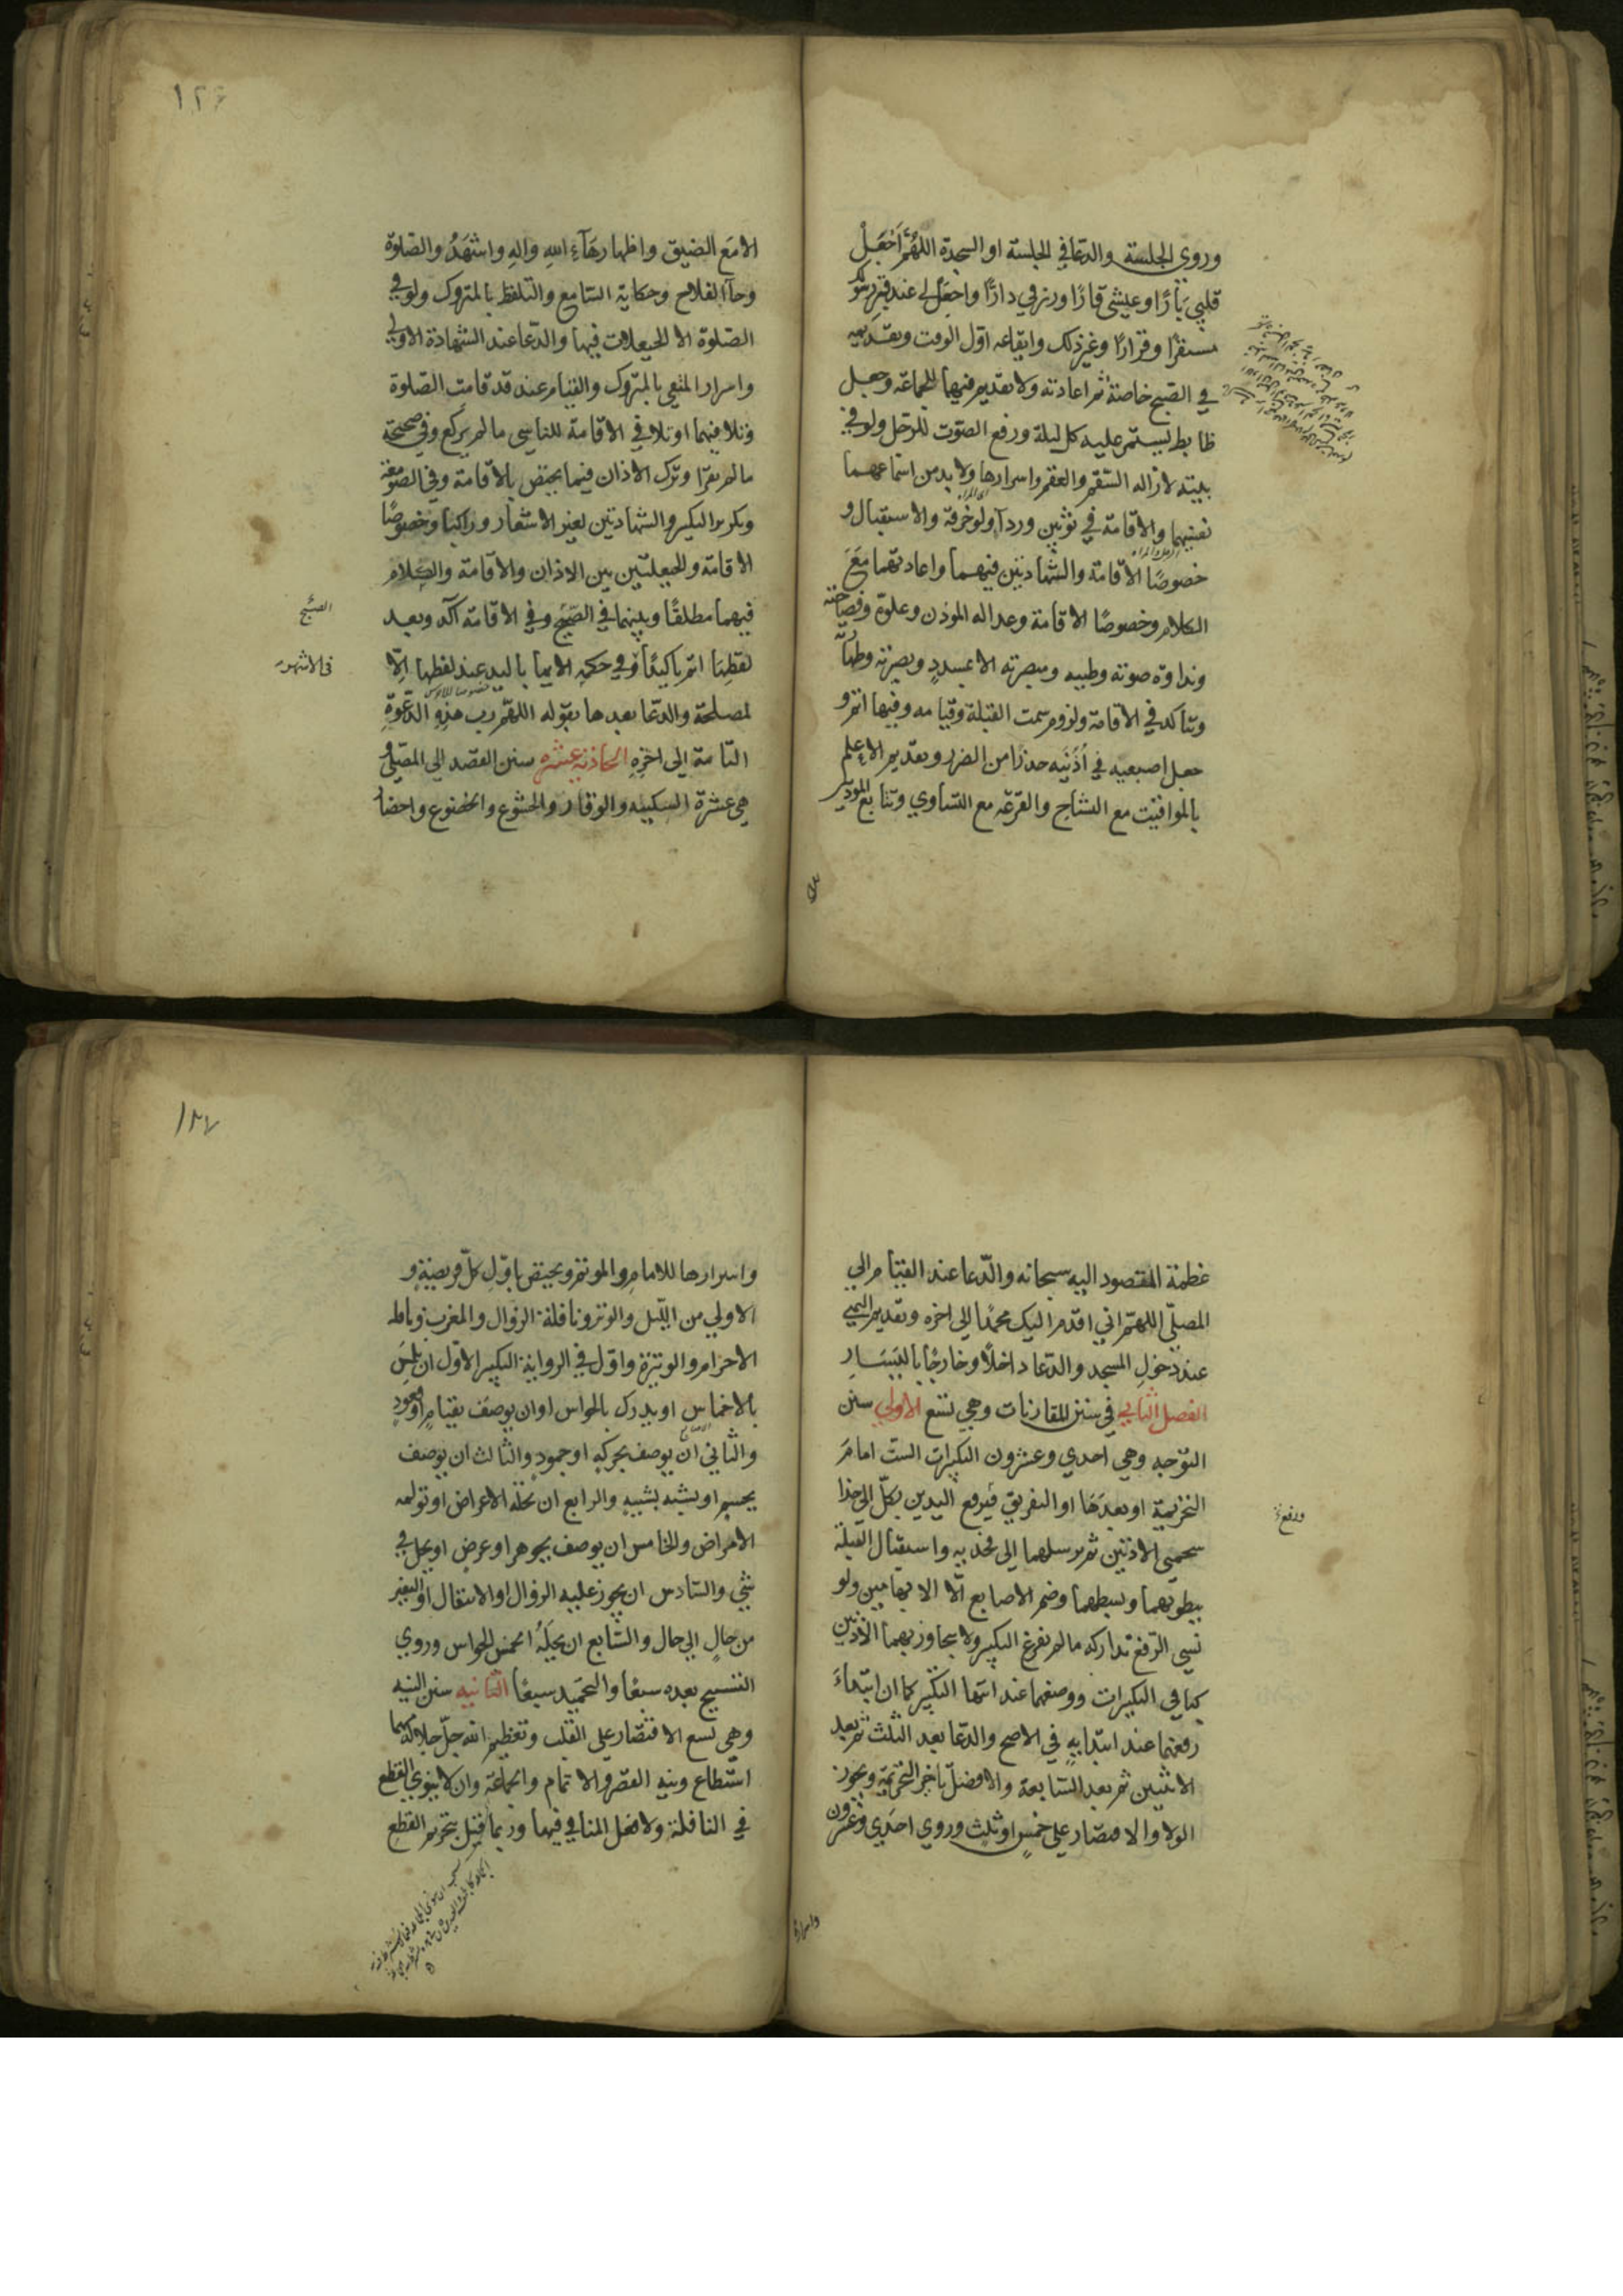 وروي الجلسة والدعا في الجلسة او السجدة اللهم اجعل
قلبي بارًا وعيشي قارًا ورزقي دارًا واجعل لي عند قبر رسولك
مستقرًا وقرارًا وغير ذلك وايقاعه اول الوقت وتقديمه
في الصبح خاصة ثم اعادته ولا تقديم فيها للجماعة وجعل
ظابط يستمر عليه كل ليلة ورفع الصوت للرجل ولو في
بيته لازاله السقم والعقم واسرارها ولا بد من اسماعهما
نفسيهما والاقامة في ثوبين وردآ ولو خرقة والاستقبال و
خصوصًا الاقامة والشهادتين فيهما واعادتهما مَعَ
الكلام وخصوصًا الاقامة وعداله الموذن وعلوه وفصاحته
ونداوة صوته وطيبه ومبصرته الا بمسددٍ وبصيرته وطهارته
وتتاكد في الاقامة ولزوم سمت القبلة وقيامه وفيها اتم و
جعل اصبعيه في اُذُنَيه حذرًا من الضرر وتقديم الاعلم
بالمواقيت مع التشاح والقرعة مع التساوي وتتابع الموذنين
١٢٦
الا مَع الضيق واظهار هَآءِ اللهِ والهِ واشهَدُ والصلوة
وحآ الفلاح وحكاية السامع والتلفظ بالمتروك ولو في
الصلوة الا الحيعلات فيها والدعا عند الشهادة الاولى
واسرار المتقي بالمتروك والقيام عند قد قامت الصلوة
وتلافيهما او تلافي الاقامة للناسي ما لم يركع وفي صحيحة
ما لم يقرا وترك الاذان فيما يختص بالاقامة وفي الصومعة
وتكرير التكبير والشهادتين لغير الاشعار وراكبا وخصوصًا
الاقامة والحيعلتين بين الاذان والاقامة والكلام
فيهما مطلقًا وبينهما في الصبح وفي الاقامة آكد وبعد
الصبح
لفظها اتم تاكيدًا وفي حكمه الايما باليد عند لفظها الا
في الاشهر
لمصلحة والدعا بعدها بقوله اللهم رب هذه الدعوةِ
التامة الى اخره الحادية عشره سنن القصد الى المصلى
هي عشرة السكينه والوقار والخشوع والخضوع واحضار
عظمة المقصود اليه سبحانه والدعا عند القيام الى
المصلى اللهم اني اقدم اليك محمدًا الى اخره وتقديم اليمنى
عند دخولِ المسجد والدعا داخلًا وخارجًا باليَسَارِ
الفصل الثاني في سنن المقارنات وهي تسع الاولى سنن
التوجه وهي احدي وعشرون التكبيرات الست امامَ
التحريمة او بعدَها او التفريق فيرفع اليدين بكلٍّ الى حذا
ورفع
شحمتي الاذنين ثم يرسلهما الى فخذيه واستقبال القبلة
ببطونهما وبسطهما وضم الاصابع الّا الابهامين ولو
نسي الرفع تداركه ما لم يفرغ التكبير ولا يتجاوز بهما الاذنين
كباقي التكبيرات ووضعهما عند انتها التكبير كما ان ابتداءَ
رفعهما عند ابتدايهِ في الاصح والدعا بعد الثلث ثم بعد
الاثنين ثم بعد السابعة والافضل تاخير التحريمة ويجوز
الولا والاقتصار على خمسٍ او ثلث وروي احدي وعشرون
واسرارها
١٢٧
واسرارها للامامِ والموتم ويختص باولِ كلّ فريضةٍ و
الاولي من الليل والوتر ونافلة الزوال والمغرب ونافله
الاحرام والوتيرة واول في الرواية التكبير الاول ان يلمس
بالاخماس او يدرك بالحواس او ان يوصف بقيامٍ او قعودٍ
والثاني ان يوصف بحركةٍ او جمودٍ والثالث ان يوصف
بجسمٍ او يشبه بشبيهٍ والرابع ان تحله الاعراض او تولمه
الامراض والخامس ان يوصف بجوهر او عرض او يحل في
شيٍ والسادس ان يجوز عليه الزوال او الانتقال او التغير
من حالٍ الى حال والسابع ان يحلهُ الخمس الحواس وروي
التسبيح بعده سبعًا والتحميد سبعًا الثانيه سنن النيه
وهي تسع الاقتصار على القلب وتعظيم الله جلّ جلاله مهما
استطاع ونيه القصر والاتمام والجماعة وان لا ينوي القطع
في النافلة ولا فعل المنافي فيها وربما قيل بتحريم القطع